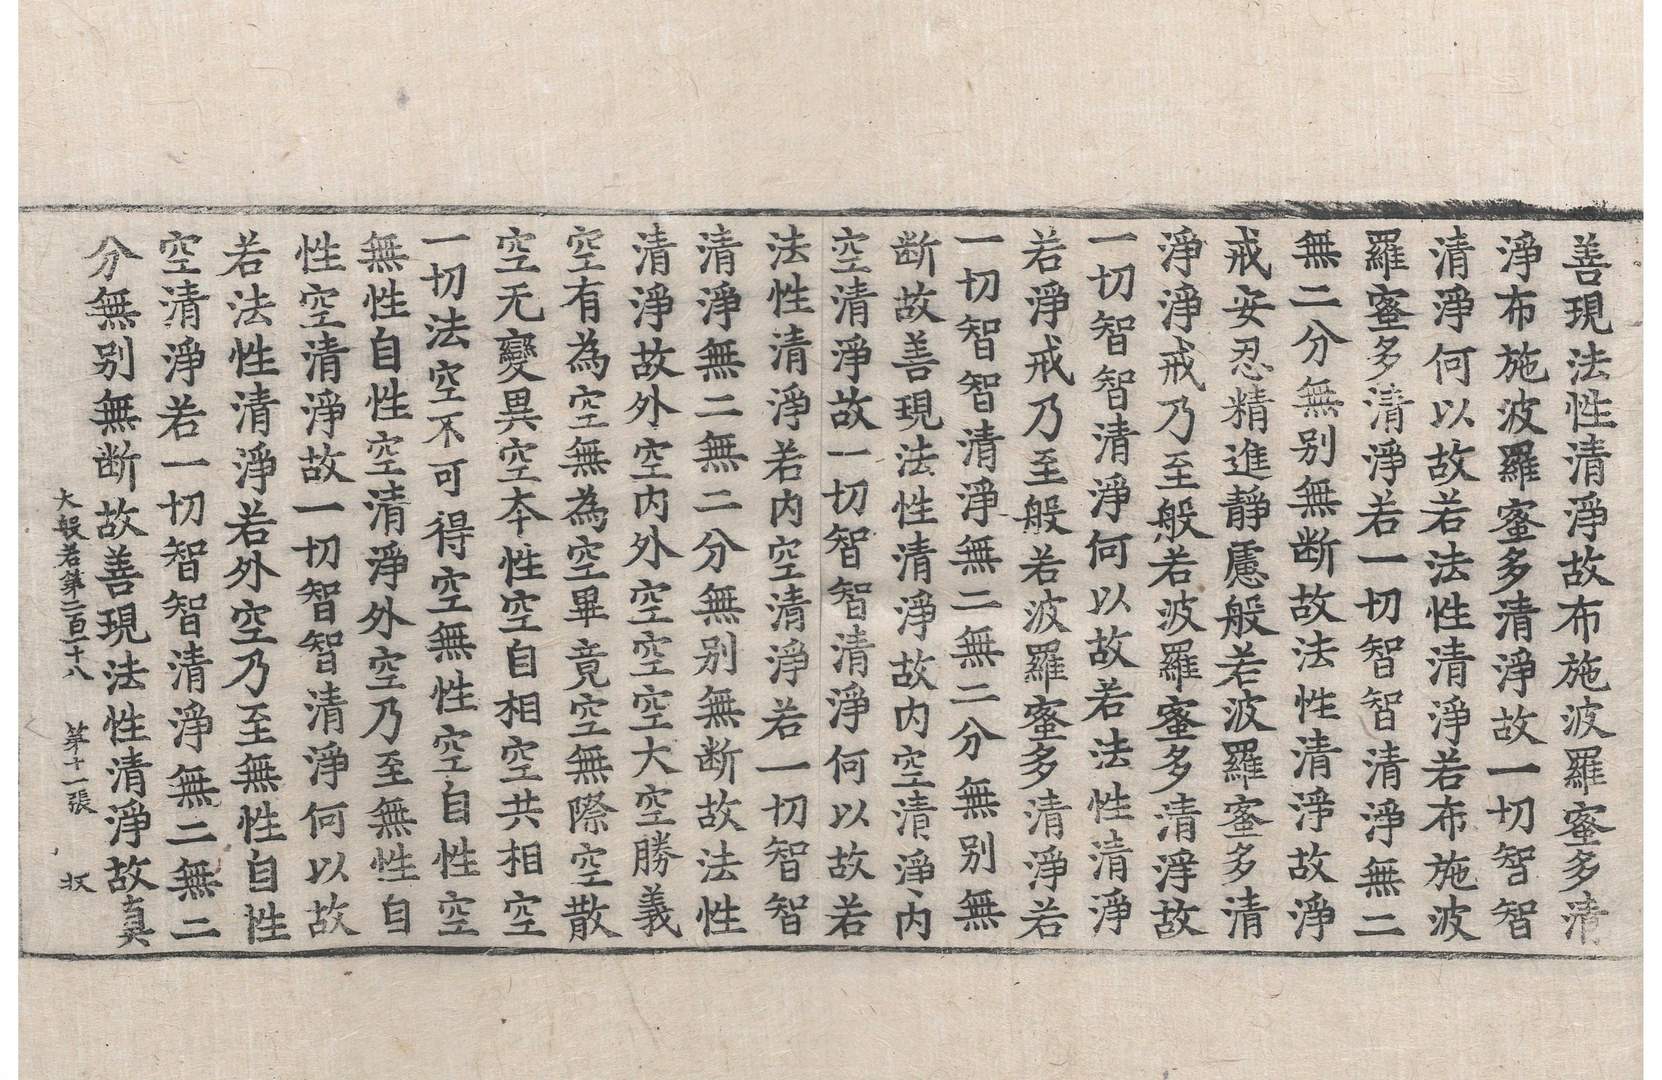 善現法性清淨故布施波羅蜜多清
淨布施波羅蜜多清淨故一切智智
清淨何以故若法性清淨若布施波
羅蜜多清淨若一切智智清淨無二
無二分無别無断故法性清淨故淨
戒安忍精進靜慮般若波羅蜜多清
淨淨戒乃至般若波羅蜜多清淨故
一切智智清淨何以故若法性清淨
若淨戒乃至般若波羅蜜多清淨若
一切智智清淨無二無二分無别無
断故善現法性清淨故内空清淨内
空清淨故一切智智清淨何以故若
法性清淨若内空清淨若一切智智
清淨無二無二分無别無断故法性
清淨故外空内外空空空大空勝義
空有為空無為空畢竟空無際空散
空无變異空本性空自相空共相空
一切法空不可得空無性空自性空
無性自性空清淨外空乃至無性自
性空清淨故一切智智清淨何以故
若法性清淨若外空乃至無性自性
空清淨若一切智智清淨無二無二
分無别無断故善現法性清淨故真
大般若第二百二十八 第十一張